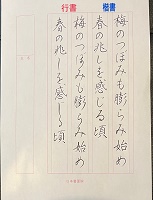 楷書
梅のつぼみも膨らみ始め
春の兆しを感じる頃
行書
梅のつぼみも膨らみ始め
春の兆しを感じる頃